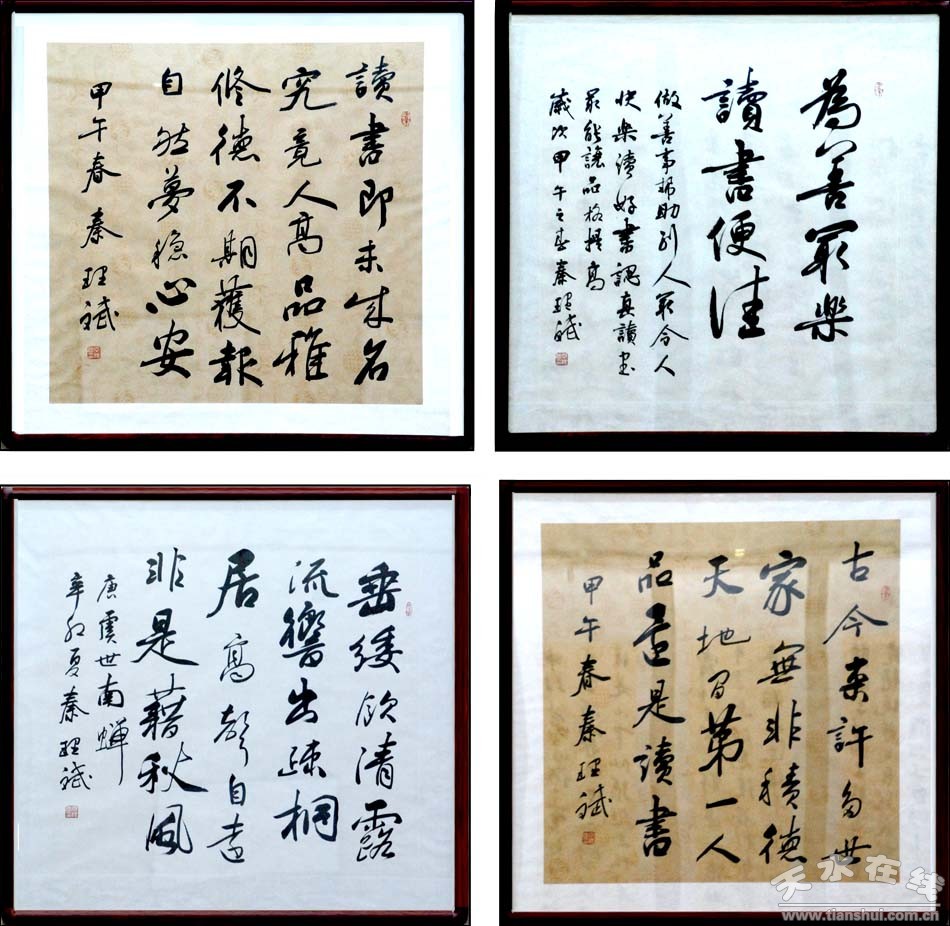 讀書即未成名
究竟人高品雅
修德不期獲報
自然夢穩心安
甲午春 秦理斌
為善最樂
讀書便佳
做善事帮助别人最令人
快樂读好書認真讀書
最能讓品格提高
歲次甲午之春秦理斌
垂緌飲清露
流響出疎桐
居高聲自遠
非是藉秋風
唐虞世南蟬
辛卯夏秦理斌
古今來許多世
家無非積德
天地間第一人
品還是讀書
甲午春秦理斌
天水在线
www.tianshui.com.cn